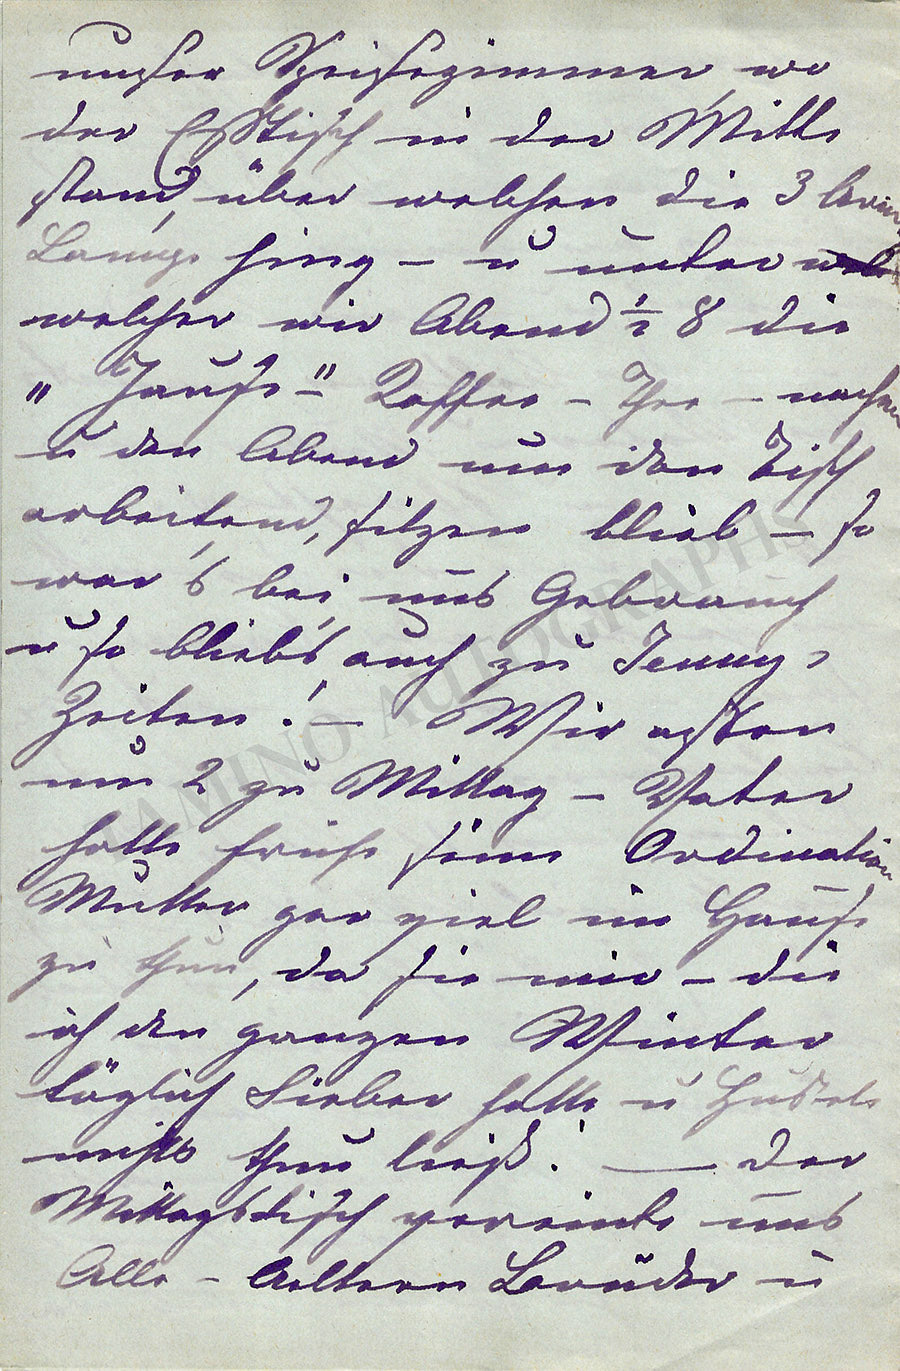 unser Speisezimmer wo
der Eßtisch in der Mitte
stand, über welchen die 3 armi
Lampe hing – u unter
welcher wir Abend ½ 8 die
„Jause –" Kaffee – Thee – nahmen
u den Abend um den Tisch
arbeitend, sitzen blieb – so
war's bei uns Gebrauch
u so blieb's auch zu Jenny's
Zeiten! – Wir assen
um 2 zu Mittag – Vater
hatte früh seine Ordination
Mutter gar viel im Hause
zu thun, da sie mir – die
ich den ganzen Winter
täglich Fieber hatte u Hustete
nichts thun ließ! — der
Mittagstisch vereinte uns
Alle – Aeltern Brüder u
TAMINO AUTOGRAPHS